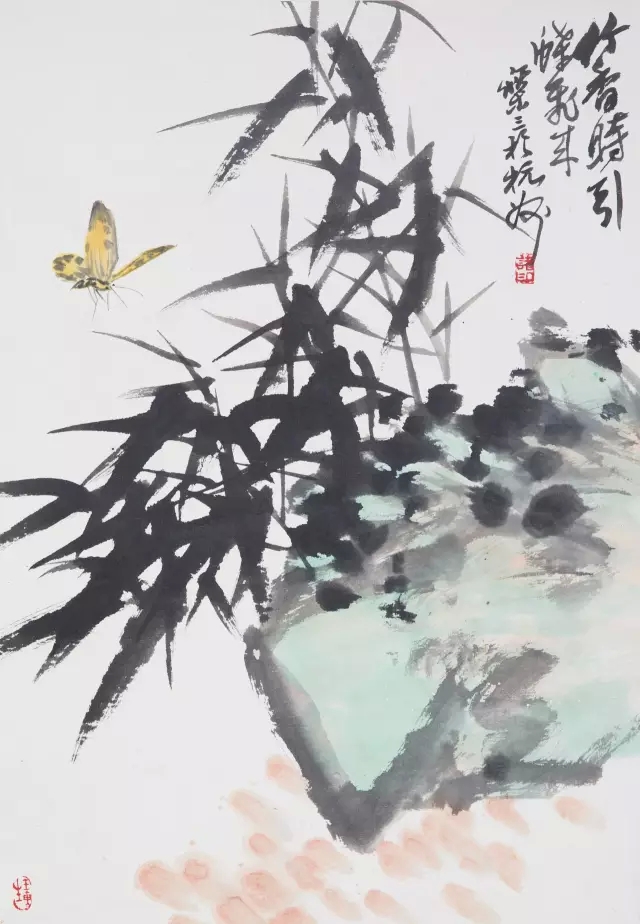 竹香時引
蝶飛来
樂三於杭州